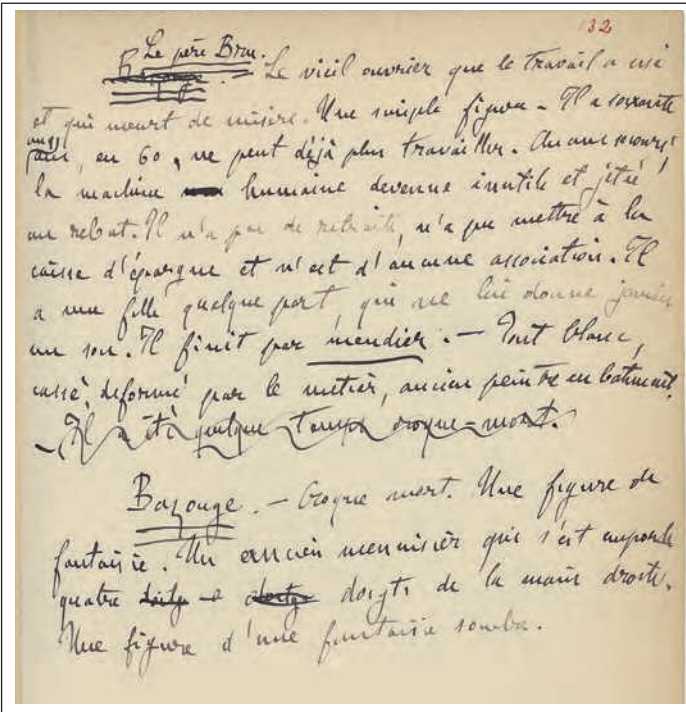 132
Le père Bru.
Bazouge. Le vieil ouvrier que le travail a usé
et qui meurt de misère. Une simple figure – Il a soixante
ans, en 60, ne peut déjà plus travailler. Aucun secours,
la machine humaine devenue inutile et jetée
au rebut. Il n'a pas de retraite, n'a pu mettre à la
caisse d'épargne et n'est d'aucune association. Il
a une fille quelque part, qui ne lui donne jamais
un sou. Il finit par mendier. – Tout blanc,
cassé, deformé par le métier, ancien peintre en bâtiment.
– Il a été quelque temps croque-mort.
Bazouge. – Croque mort. Une figure de
fantaisie. Un ancien menuisier qui s'est emporté
quatre doigts de la main droite.
Une figure d'une fantaisie sombre.